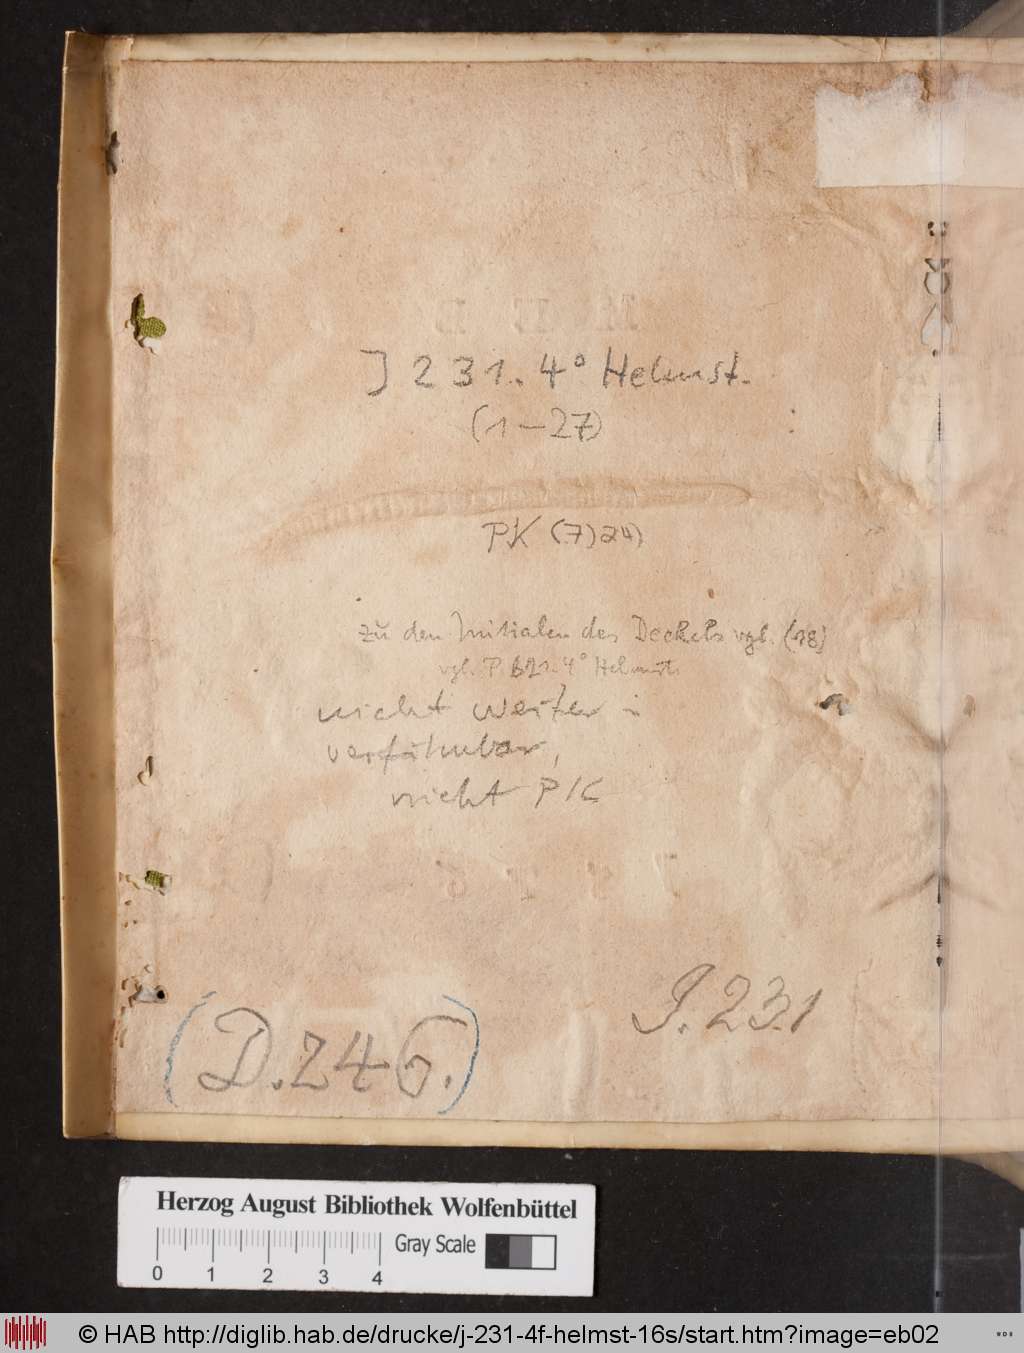 J 231. 4° Helmst.
(1-27)
PK (7) 24)
zu den Initialen des Deckels vgl. (18)
vgl. P 621. 4° Helmst.
nicht weiter
nicht PK
J. 231
(D. 246.)
Herzog August Bibliothek Wolfenbüttel
Gray Scale
0 1 2 3 4
© HAB http://diglib.hab.de/drucke/j-231-4f-helmst-16s/start.htm?image=eb02